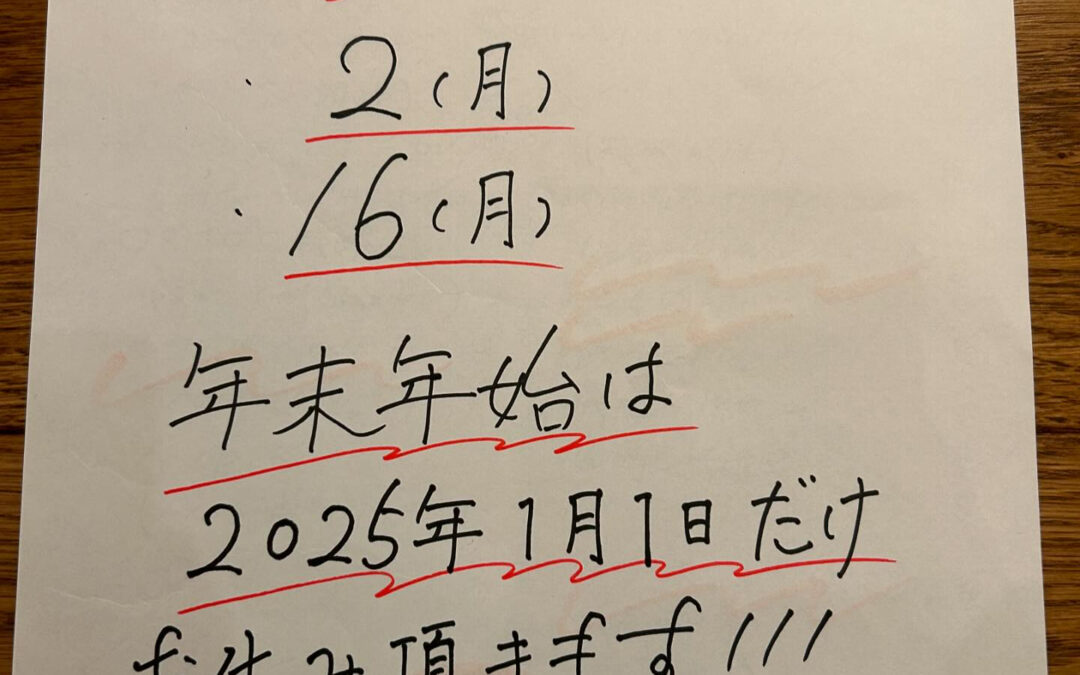 ・2(月)
・16(月)
年末年始は
2025年1月1日だけ
お休み頂きます!!!